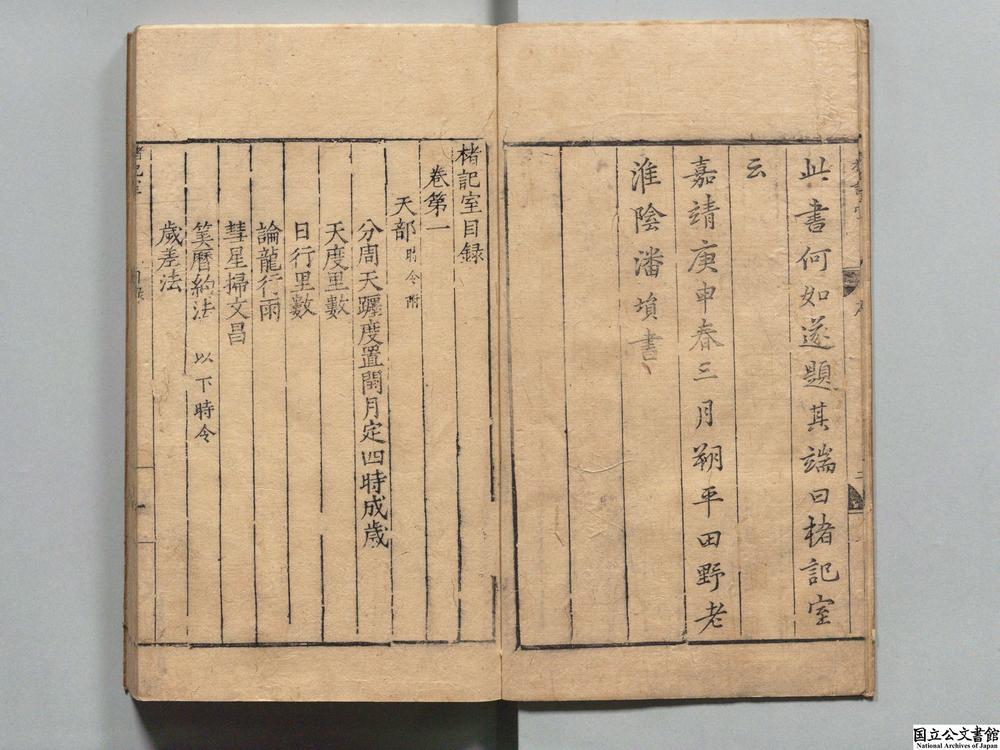 此書何如遂題其端曰楮記室
云
嘉靖庚申春三月朔平田野老
淮陰潘塤書
楮記室目録
卷第一
天部 時令附
分周天躔度置閏月定四時成歲
天度里數
日行里數
論龍行雨
彗星掃文昌
筭曆約法 以下時令
歲差法
国立公文書館
National Archives of Japan